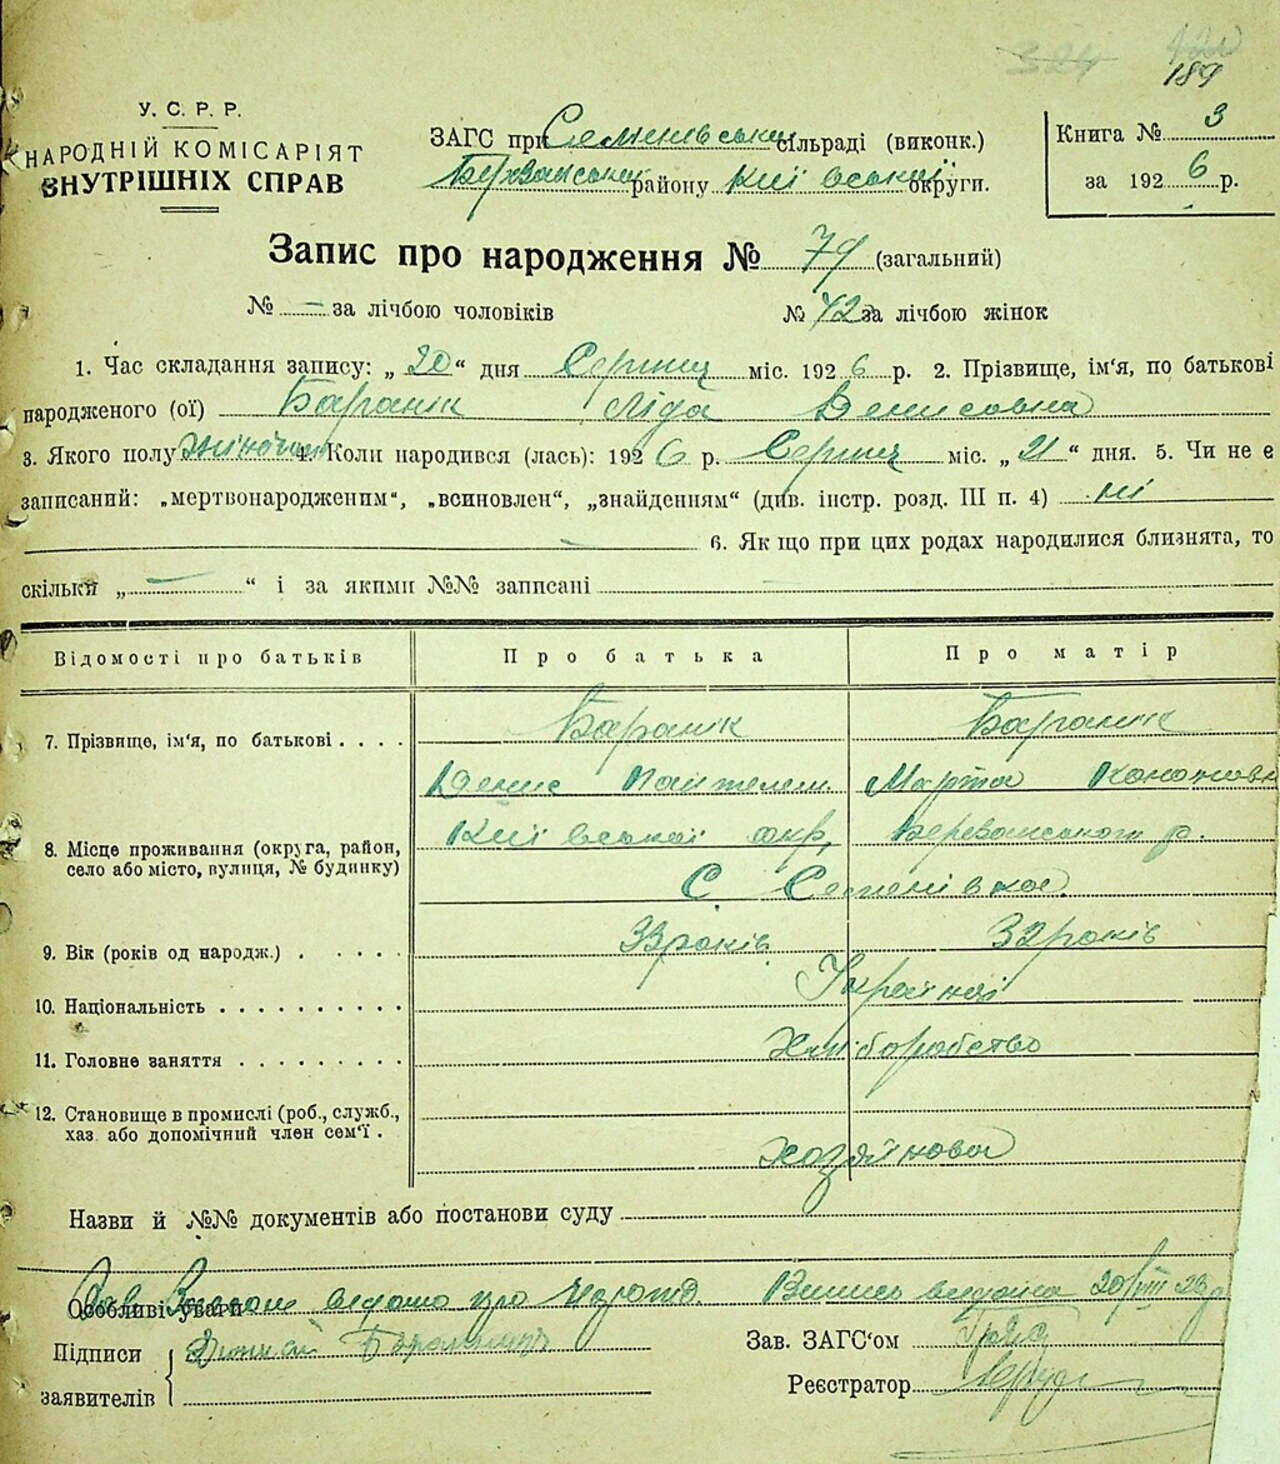 189
У. С. Р. Р.
НАРОДНІЙ КОМІСАРІЯТ
ВНУТРІШНІХ СПРАВ
ЗАГС при Семенівській сільраді (виконк.)
району Київської округи.
Книга № 3
за 1926 р.
Запис про народження № 79 (загальний)
№ — за лічбою чоловіків № 42 за лічбою жінок
1. Час складання запису: „20“ дня Серпня міс. 1926 р. 2. Прізвище, ім'я, по батькові
народженого (ої) Бараник Ліда Денисовна
3. Якого полу жіночого 4. Коли народився (лась): 1926 р. Серпня міс. „21“ дня. 5. Чи не є
записаний: „мертвонародженим“, „всиновлен“, „знайденням“ (див. інстр. розд. III п. 4) ні
— 6. Якщо при цих родах народилися близнята, то
скільки „—“ і за якими №№ записані
Відомості про батьків Про батька Про матір
7. Прізвище, ім'я, по батькові . . . . Бараник Бараник
Денис Пантелем. Марта Кононовн
8. Місце проживання (округа, район, село або місто, вулиця, № будинку) Київської окр, Березанського р.
С. Семенівка
9. Вік (років од народж.) . . . . . 33 років 32 років
10. Національність . . . . . . . . . . Українці
11. Головне заняття . . . . . . . . Хліборобство
12. Становище в промислі (роб., служб.,
хаз або допомічний член сем'ї .
Назви й №№ документів або постанови суду
Особливі уваги видано про Випись видана 20/VIII 26 р
Підписи
заявителів
Зав. ЗАГС'ом
Реєстратор